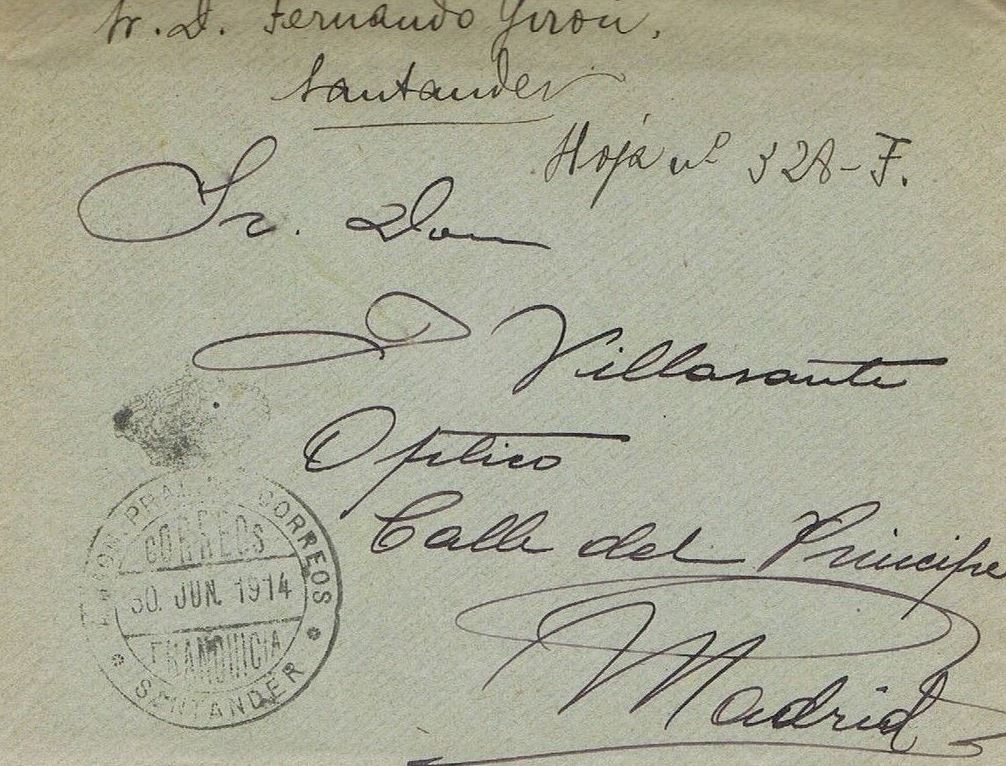 Sr. D. Fernando Girón,
Santander
Hoja nº 328-F.
Sr. Don
J Villasante
Optico
Calle del Principe
Madrid
PRAL DE CORREOS
CORREOS
30. JUN. 1914
FRANQUICIA
SANTANDER